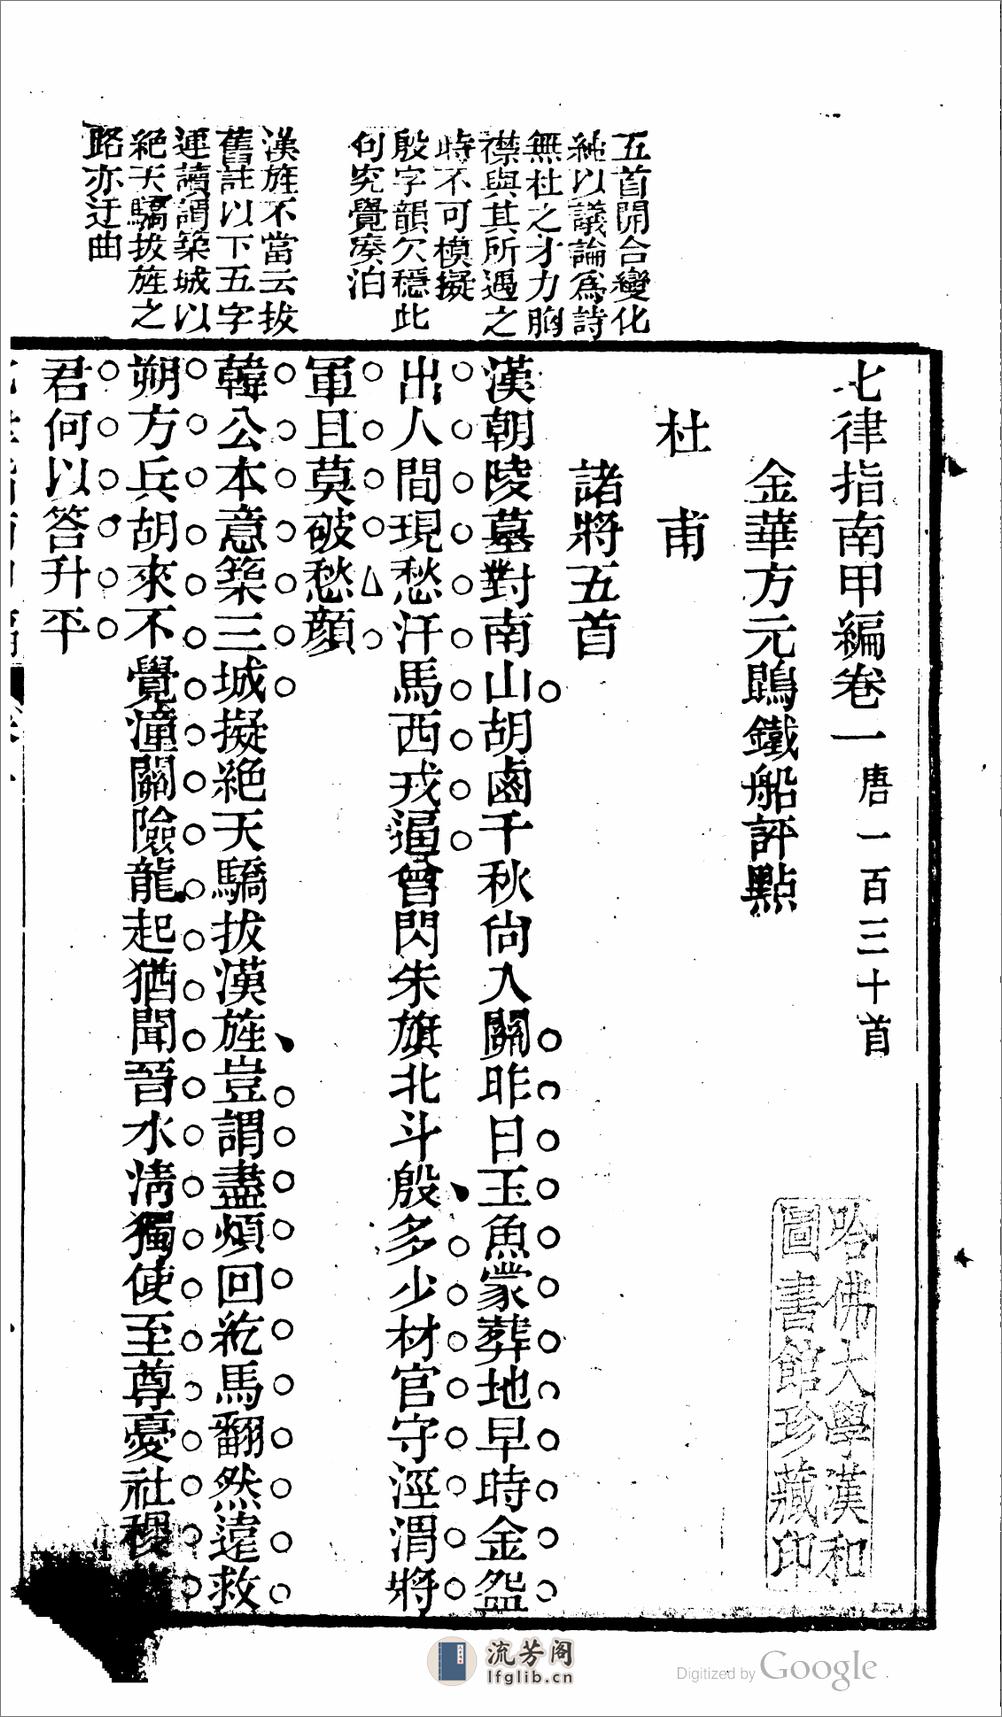 七律指南甲編卷一 唐一百三十首
金華方元鵾鐵船評點
杜甫
諸將五首
漢朝陵墓對南山胡鹵千秋尙入關昨日玉魚蒙葬地早時金盌
出人間現愁汗馬西戎逼曾閃朱旗北斗殷多少材官守涇渭將
軍且莫破愁顔
韓公本意築三城擬絕天驕拔漢旌豈謂盡煩回紇馬翻然遠救
朔方兵胡來不覺潼關險龍起猶聞晉水淸獨使至尊憂社稷
君何以答升平
五首開合變化
純以議論爲詩
無杜之才力胸
襟與其所遇之
時不可模擬
殷字韻欠穩此
句究覺湊泊
漢旌不當云拔
舊註以下五字
連讀謂築城以
絕天驕拔旌之
路亦迂曲
哈佛大學漢和
圖書館珍藏印
流芳阁
lfglib.cn
Digitized by Google